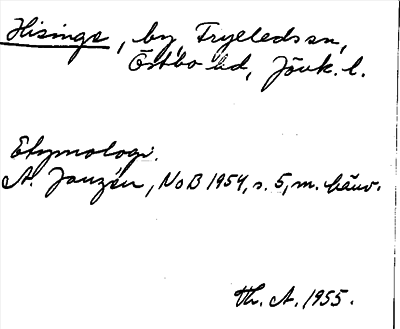 Hisinge, by, Tryeleds sn,
Östbo hd, Jönk. l.
Etymologi.
A. Janzén, NoB 1954, s. 5, m. hänv.
Th. A. 1955.